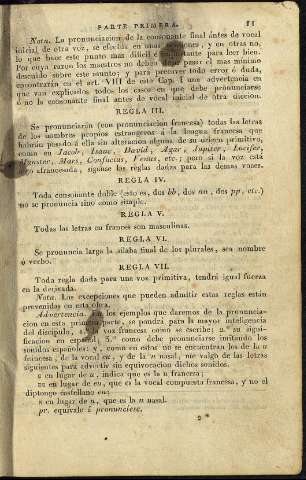 PARTE PRIMERA. 11
Nota. La pronunciacion de la consonante final ántes de vocal
inicial de otra voz, se efectúa en unas ocasiones, y en otras no,
lo que hace este punto mas dificil é importante para leer bien.
Por cuya razon los maestros no deben dejar pasar el mas mínimo
descuido sobre este asunto; y para precaver todo error ó duda,
encontrarán en el art. VIII de este Cap. I una advertencia en
que van explicados todos los casos en que debe pronunciarse
ó no la consonante final ántes de vocal inicial de otra diccion.
REGLA III.
Se pronunciarán (con pronunciacion francesa) todas las letras
de los nombres propios extrangeros á la lengua francesa que
habrán pasado á ella sin alteracion alguna de su orígen primitivo,
como en Jacob, Isaac, David, Agar, Jupiter, Lucifer,
Mars, Confucius, Venus, etc.; pero si la voz está
afrancesada, síganse las reglas dadas para las demas voces.
REGLA IV.
Toda consonante doble (esto es, dos bb, dos nn, dos pp, etc.)
no se pronuncia sino como simple.
REGLA V.
Todas las letras en frances son masculinas.
REGLA VI.
Se pronuncia larga la sílaba final de los plurales, sea nombre
ó verbo.
REGLA VII.
Toda regla dada para una voz primitiva, tendrá igual fuerza
en la derivada.
Nota. Las excepciones que pueden admitir estas reglas están
prevenidas en esta obra.
Advertencia. En los ejemplos que daremos de la pronunciacion
en esta primera parte, se pondrá para la mayor inteligencia
del discípulo, la voz francesa como se escribe; 2.º su significacion
en español; 3.º como debe pronunciarse imitando los
sonidos españoles; y como en estos no se encuentran los de la u
francesa, de la vocal eu, y de la n nasal, me valgo de las letras
siguientes para advertir sin equivocacion dichos sonidos.
en lugar de u, indica que es la u francesa;
eu en lugar de eu, que es la vocal compuesta francesa, y no el
diptongo castellano eu;
en lugar de n, que es la n nasal.
pr. equivale á pronunciese.
2*